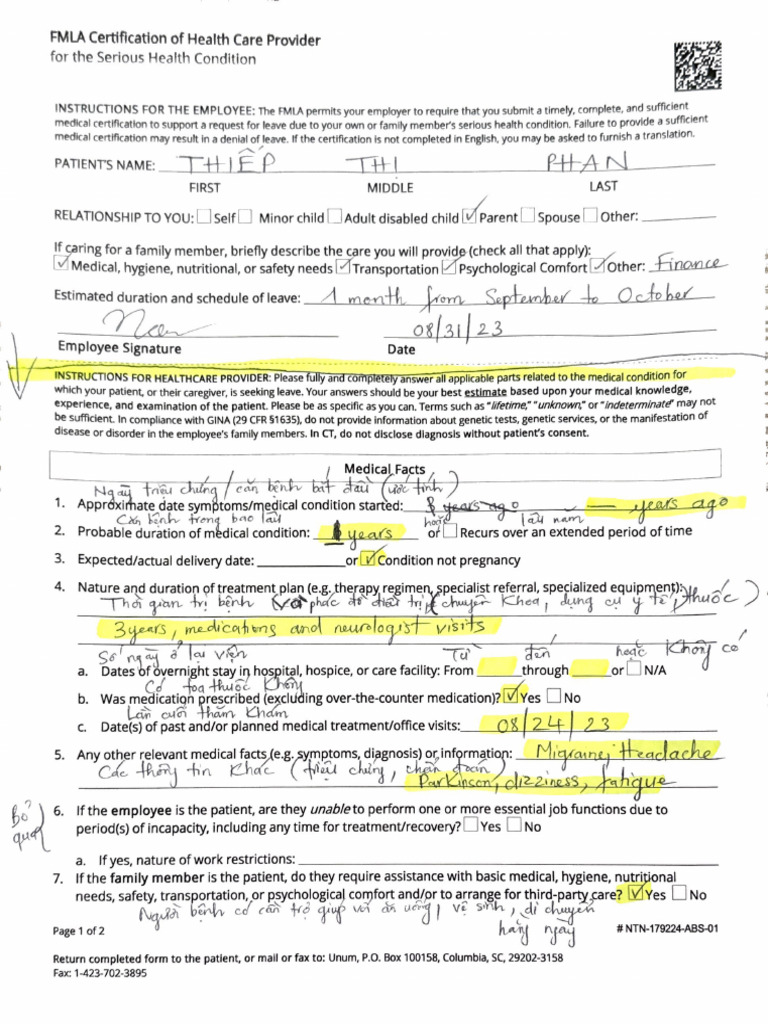 FMLA Certification of Health Care Provider
for the Serious Health Condition
INSTRUCTIONS FOR THE EMPLOYEE: The FMLA permits your employer to require that you submit a timely, complete, and sufficient
medical certification to support a request for leave due to your own or family member's serious health condition. Failure to provide a sufficient
medical certification may result in a denial of leave. If the certification is not completed in English, you may be asked to furnish a translation.
PATIENT'S NAME: THIẾP THỊ PHAN
FIRST MIDDLE LAST
RELATIONSHIP TO YOU: ☐ Self ☐ Minor child ☐ Adult disabled child ☑ Parent ☐ Spouse ☐ Other:
If caring for a family member, briefly describe the care you will provide (check all that apply):
☑ Medical, hygiene, nutritional, or safety needs ☑ Transportation ☑ Psychological Comfort ☑ Other: Finance
Estimated duration and schedule of leave: 1 month from September to October
08/31/23
Employee Signature Date
INSTRUCTIONS FOR HEALTHCARE PROVIDER: Please fully and completely answer all applicable parts related to the medical condition for
which your patient, or their caregiver, is seeking leave. Your answers should be your best estimate based upon your medical knowledge,
experience, and examination of the patient. Please be as specific as you can. Terms such as "lifetime," "unknown," or "indeterminate" may not
be sufficient. In compliance with GINA (29 CFR §1635), do not provide information about genetic tests, genetic services, or the manifestation of
disease or disorder in the employee's family members. In CT, do not disclose diagnosis without patient's consent.
Medical Facts
Ngày triệu chứng / căn bệnh bắt đầu (ước tính)
1. Approximate date symptoms/medical condition started: years ago years ago
bệnh trong bao lâu hoặc lâu năm
2. Probable duration of medical condition: years or ☐ Recurs over an extended period of time
3. Expected/actual delivery date: or ☑ Condition not pregnancy
4. Nature and duration of treatment plan (e.g. therapy regimen, specialist referral, specialized equipment):
Thời gian trị bệnh và phác đồ điều trị (chuyên khoa, dụng cụ y tế, thuốc)
3 years, medications and neurologist visits
Số ngày ở lại viện Từ đến hoặc Không có
a. Dates of overnight stay in hospital, hospice, or care facility: From through or ☐ N/A
Có toa thuốc không
b. Was medication prescribed (excluding over-the-counter medication)? ☑ Yes ☐ No
Lần cuối thăm khám
c. Date(s) of past and/or planned medical treatment/office visits: 08/24/23
5. Any other relevant medical facts (e.g. symptoms, diagnosis) or information: Migraine, Headache
Các thông tin khác (triệu chứng, chẩn đoán) Parkinson, dizziness, fatigue
Bỏ qua
6. If the employee is the patient, are they unable to perform one or more essential job functions due to
period(s) of incapacity, including any time for treatment/recovery? ☐ Yes ☐ No
a. If yes, nature of work restrictions:
7. If the family member is the patient, do they require assistance with basic medical, hygiene, nutritional
needs, safety, transportation, or psychological comfort and/or to arrange for third-party care? ☑ Yes ☐ No
Người bệnh có cần trợ giúp với ăn uống, vệ sinh, di chuyển
hằng ngày
Page 1 of 2 # NTN-179224-ABS-01
Return completed form to the patient, or mail or fax to: Unum, P.O. Box 100158, Columbia, SC, 29202-3158
Fax: 1-423-702-3895